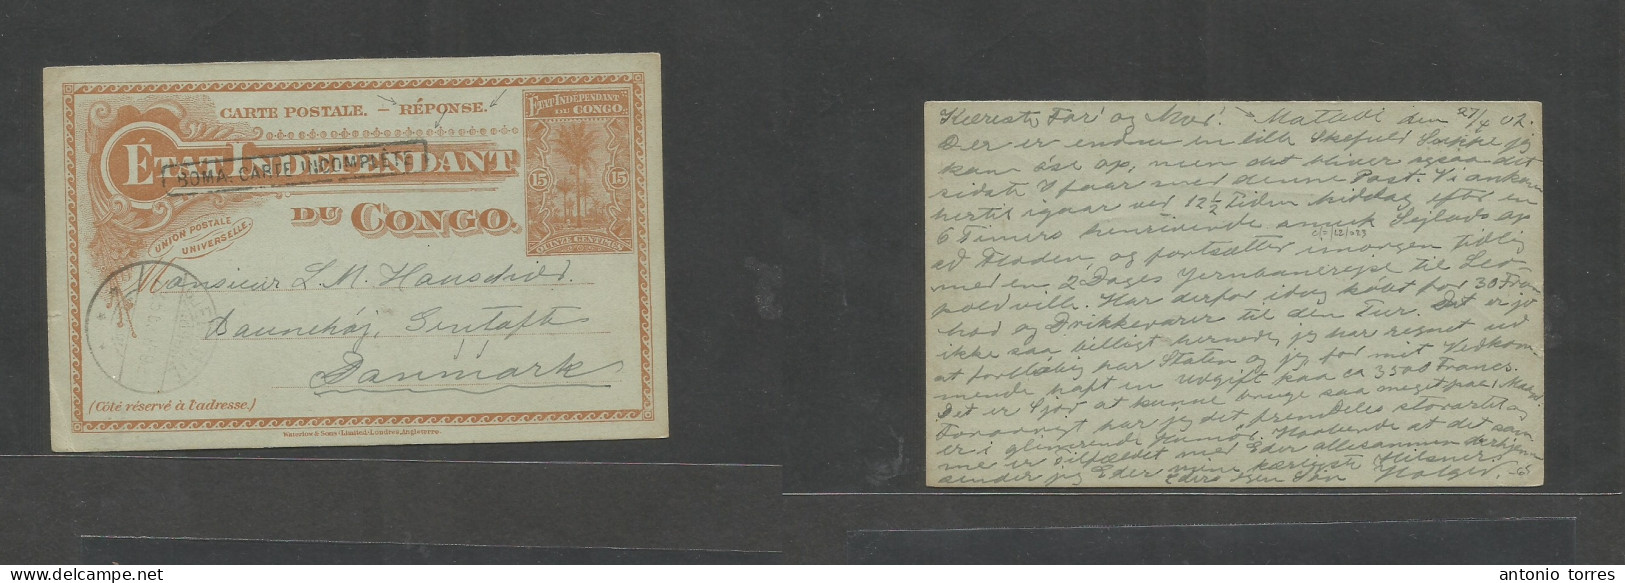 CARTE POSTALE. — RÉPONSE.
ÉTAT INDÉPENDANT
DU CONGO.
BOMA. CARTE INCOMPLÈTE
UNION POSTALE
UNIVERSELLE
ÉTAT INDÉPENDANT
DU CONGO.
15 15
QUINZE CENTIMES
Monsieur L. N. Hauschild.
Daunehöj, Gentofte
Danmark
(Côté réservé à l'adresse.)
Waterlow & Sons Limited, Londres, Angleterre.
Kæreste Far og Mor! Matadi den 27/4 02.
Der er endnu en lille Skefuld Suppe jeg
kan øse op, men det bliver ogsaa det
sidste I faar med denne Post. Vi ankom
hertil igaar ved 12½ Tiden Middag efter en
6 Timers henrivende smuk Sejlads op
ad Floden, og fortsætter imorgen tidlig
med en 2 Dages Jernbanerejse til Leo-
poldville. Har derfor idag købt for 30 Fra
Mad og Drikkevarer til den Tur. Det er jo
ikke saa billigt hernede, jeg har regnet ud
at foreløbig har Staten og jeg for mit Vedkom-
mende haft en Udgift paa ca 3500 Francs.
Det er Sjov at kunne bruge saa meget paa 1 Maaned.
Forøvrigt har jeg det fremdeles storartet og
er i glimrende Humør. Haabende at det samme
me er tilfældet med Eder allesammen derhjemme
sender jeg Eder mine kærligste Hilsner
Eders egen Søn Holger.
antonio torres